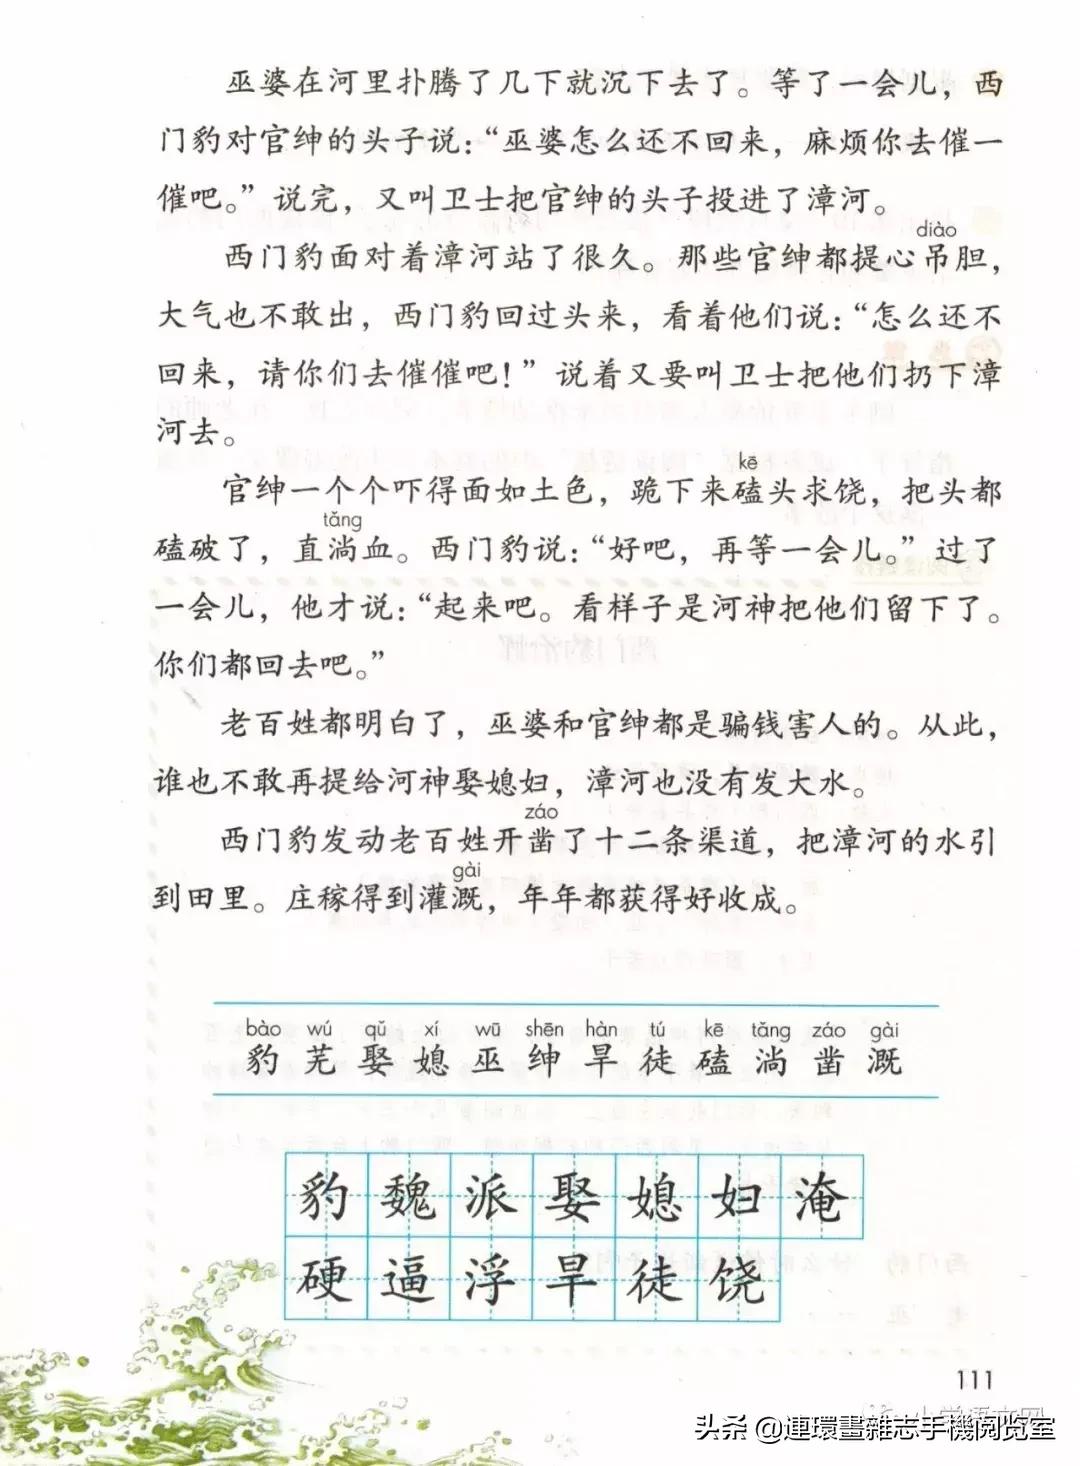 巫婆在河里扑腾了几下就沉下去了。等了一会儿，西
门豹对官绅的头子说：“巫婆怎么还不回来，麻烦你去催一
催吧。”说完，又叫卫士把官绅的头子投进了漳河。
diào
西门豹面对着漳河站了很久。那些官绅都提心吊胆，
大气也不敢出，西门豹回过头来，看着他们说：“怎么还不
回来，请你们去催催吧！”说着又要叫卫士把他们扔下漳
河去。
kē
官绅一个个吓得面如土色，跪下来磕头求饶，把头都
tǎng
磕破了，直淌血。西门豹说：“好吧，再等一会儿。”过了
一会儿，他才说：“起来吧。看样子是河神把他们留下了。
你们都回去吧。”
老百姓都明白了，巫婆和官绅都是骗钱害人的。从此，
谁也不敢再提给河神娶媳妇，漳河也没有发大水。
záo
西门豹发动老百姓开凿了十二条渠道，把漳河的水引
gài
到田里。庄稼得到灌溉，年年都获得好收成。
bào wú qǔ xí wū shēn hàn tú kē tǎng záo gài
豹 芜 娶 媳 巫 绅 旱 徒 磕 淌 凿 溉
豹 魏 派 娶 媳 妇 淹
硬 逼 浮 旱 徒 饶
111
小学语文网
头条 @連環畫雜志手機阅览室